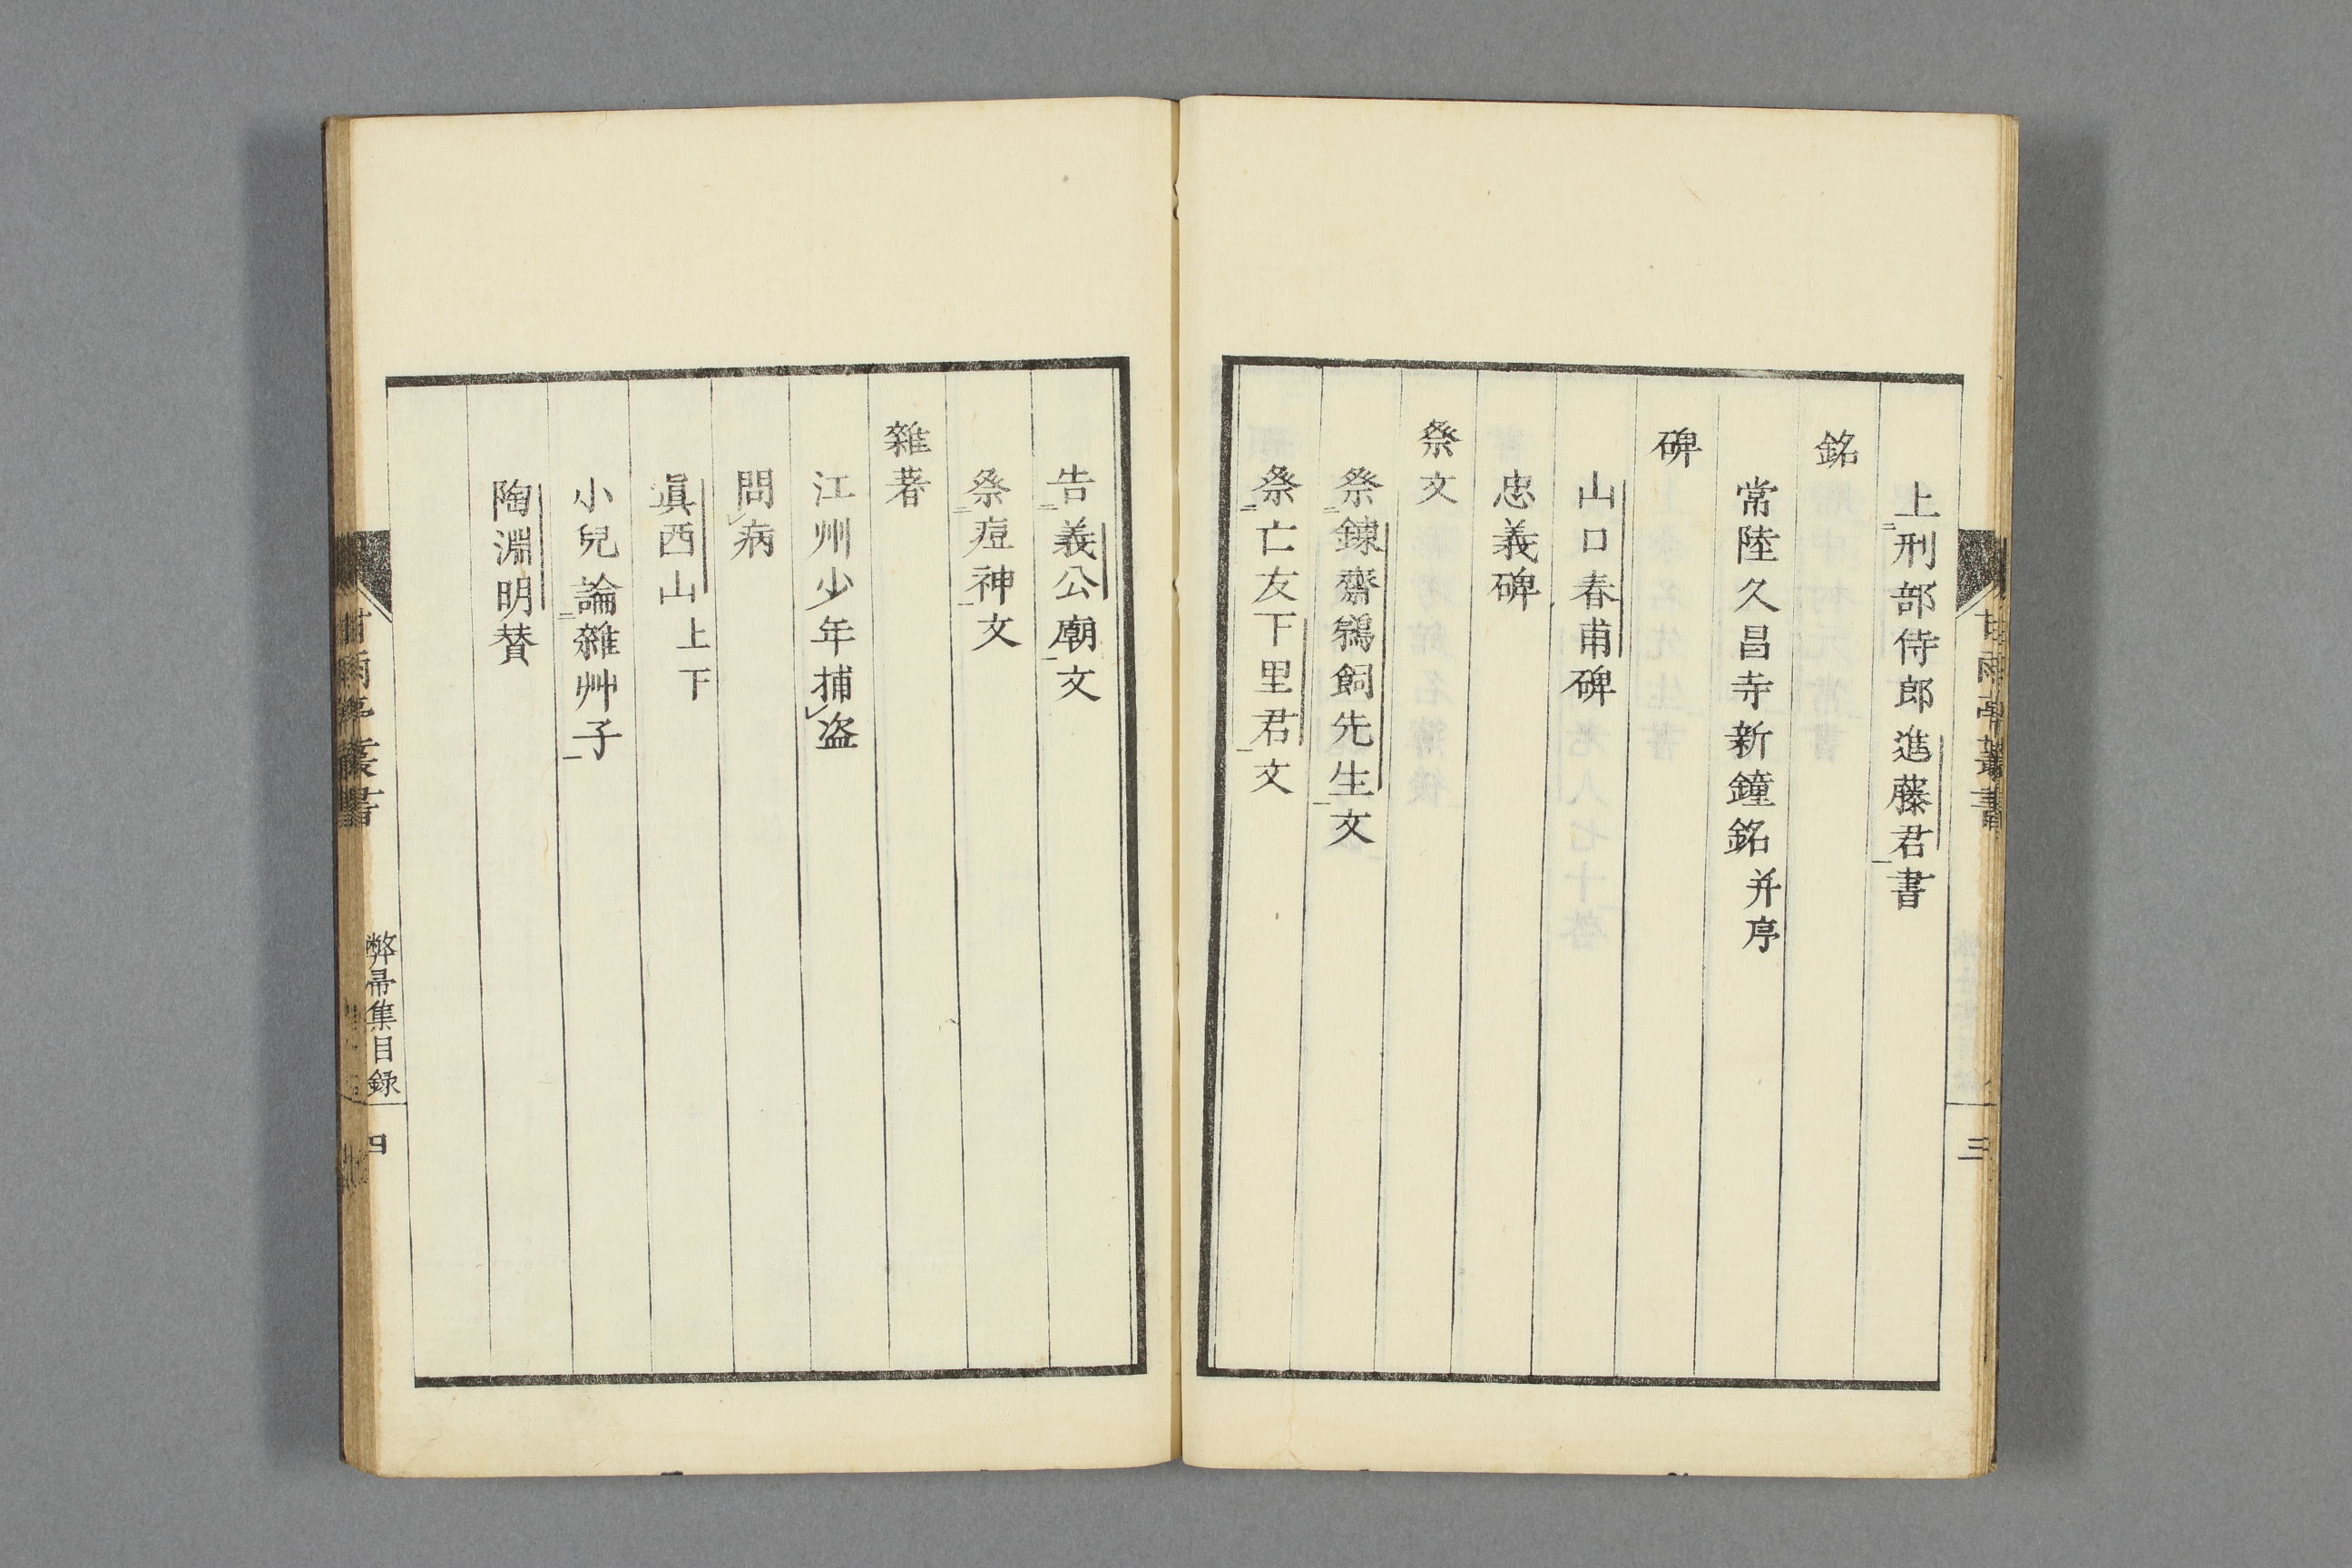 上刑部侍郎進藤君書
銘
常陸久昌寺新鐘銘并序
碑
山口春甫碑
忠義碑
祭文
祭錬齋鵜飼先生文
祭亡友下里君文
三
告義公廟文
祭痘神文
雜著
江州少年捕盗
問病
眞西山上下
小兒論雜艸子
陶淵明賛
甘雨亭叢書
弊帚集目録
四